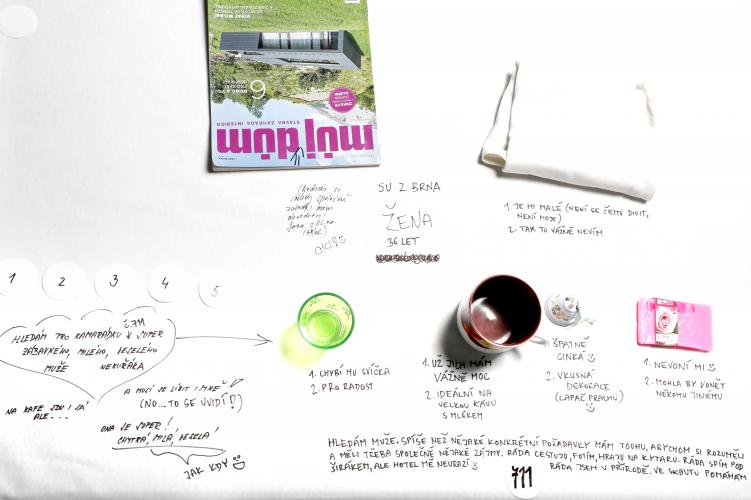 můj dům
STAVBA ZAHRADA INTERIÉR
6
SU Z BRNA
ŽENA
36 LET
1. JE MI MALÉ (NENÍ SE ČEMU DIVIT,
NENÍ MOJE)
2. TAK TO VÁŽNĚ NEVÍM
1
2
3
4
5
Č. 711
HLEDÁM PRO KAMARÁDKU V SUPER
ZÁBAVNÉHO, MILÉHO, VESELÉHO
MUŽE NEKUŘÁKA
NA KAFE JDU I JÁ!
ALE...
A MOCI SE LÍBIT I MNĚ!
(NO... TO SE UVIDÍ!)
ONA JE SUPER!,
CHYTRÁ, MILÁ, VESELÁ!
JAK KDY
1. CHYBÍ MU SVÍČKA
2. PRO RADOST
1. UŽ JICH MÁM
VÁŽNĚ MOC
2. IDEÁLNÍ NA
VELKOU KÁVU
S MLÉKEM
1. ŠPATNĚ
CINKÁ
2. VKUSNÁ
DEKORACE
(LAPAČ PRACHU)
1. NEVONÍ MI
2. MOHLA BY VONĚT
NĚKOMU JINÉMU
HLEDÁM MUŽE. SPÍŠE NEŽ NĚJAKÉ KONKRÉTNÍ POŽADAVKY MÁM TOUHU, ABYCHOM SI ROZUMĚLI
A MĚLI TŘEBA SPOLEČNÉ NĚJAKÉ ZÁJMY. RÁDA CESTUJU, FOTÍM, HRAJU NA KYTARU. RÁDA SPÍM POD
ŠIRÁKEM, ALE HOTEL MĚ NEURAZÍ
711
RÁDA JSEM V PŘÍRODĚ. VE SKAUTU POMÁHÁM